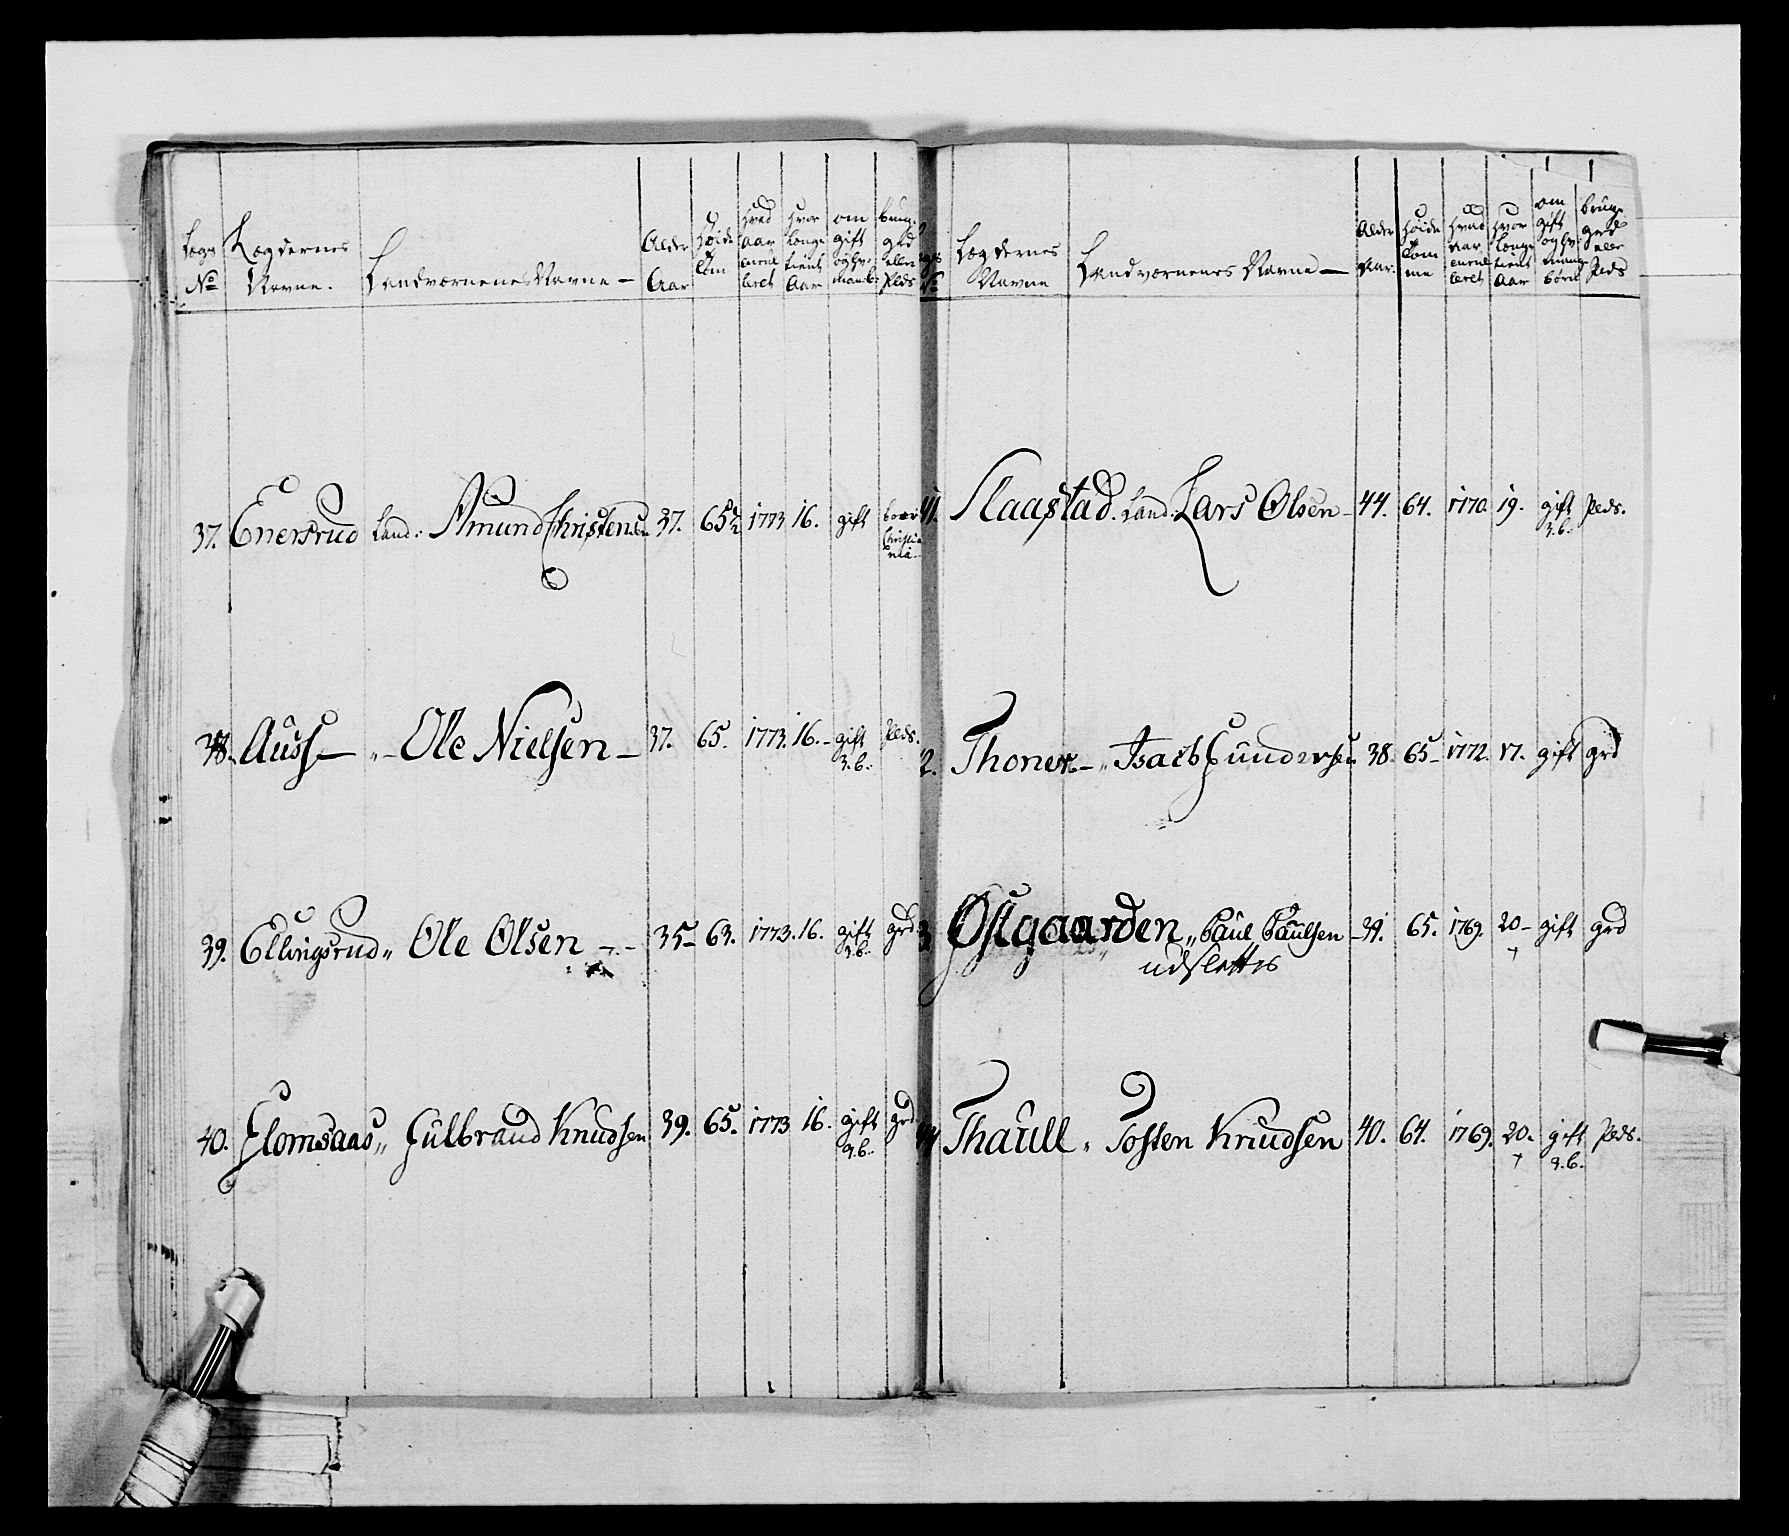 Lægs No
Lægdernes Navne.
Landværnenes Navne —
Alder Aar
Høide Tom
hvad aar enrulleret
hvor længe tient Aar
om gift og hv: mange b:
Brug. grd eller Plds
37. Enersrud Land: Amund Christensen 37. 65½ 1773 16. gift boer Christiania
38. Auss — „ — Ole Nielsen — 37. 65. 1773. 16. — gift 3. b. Plds.
39. Ellingsrud „ Ole Olsen — 35 — 63. 1773. 16. gift 3. b. grd
40. Flomsaas „ Gulbrand Knudsen 39. 65. 1773 16. gift 2. b. grd
Lægdernes Navne
Landværnenes Navne —
Alder Aar.
Høide Tomme
hvad aar enrulleret
hvor længe tient Aar
om gift og hv: mange børn
brug. grd eller Plds
41. Slaastad. Land: Lars Olsen — 44. 64. 1770. 19. gift 3. b. Plds.
2. Thoner — „ Isach Gundersen 38. 65 — 1772. 17. gift grd
3 Østgaarden „ Paul Paulsen — 39. 65. 1769. 20 — gift grd
†
udslettes
44 Thaull „ Tosten Knudsen 40. 64. 1769. 20. gift 2. b. Plds.
†